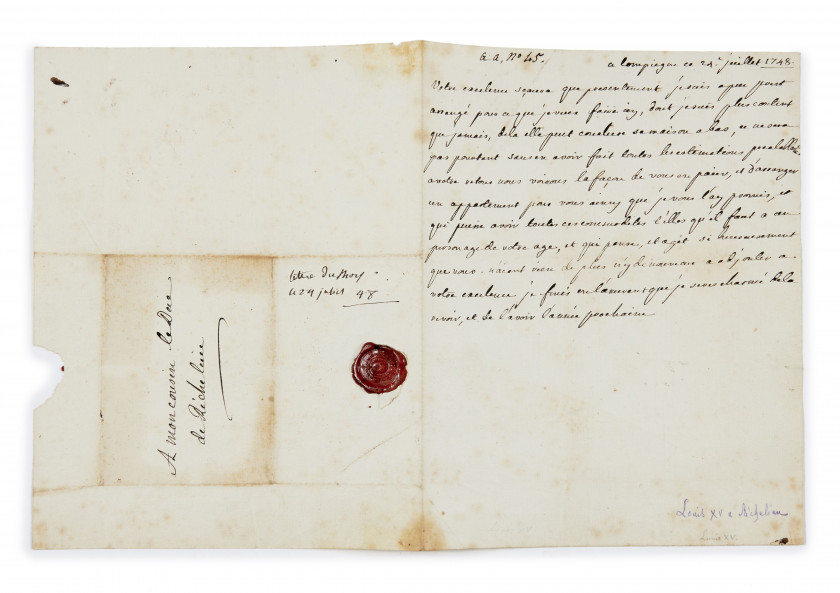 A mon cousin le Duc
de Richelieu
lettre du Roy
le 24 juliet 48
a a, N° 45.
a Compiegne ce 24.e juillet 1748.
Votre excelence sçaura que presentement je suis a peu pres
arrangé pour ce que je veus faire icy, dont je suis plus content
que jamais, de la elle peut conclure sa maison a bas, ce ne sera
pas pourtant sans en avoir fait toutes les estimations prealables
a votre retour nous voirons la façon de vous en paier, et d'arranger
un appartement pour vous ainsy que je vous l'ay promis, et
qui puisse avoir toutes ces commodités telles qu'il faut a un
personage de votre age, et qui pense, et agit si heureusement
que vous. n'aiant rien de plus ny de nouveau a adjouter a
votre excelence je finis en l'assurant que je serés charmé de la
revoir, et de l'avoir l'année prochaine
Louis XV a Richelieu
Louis XV.